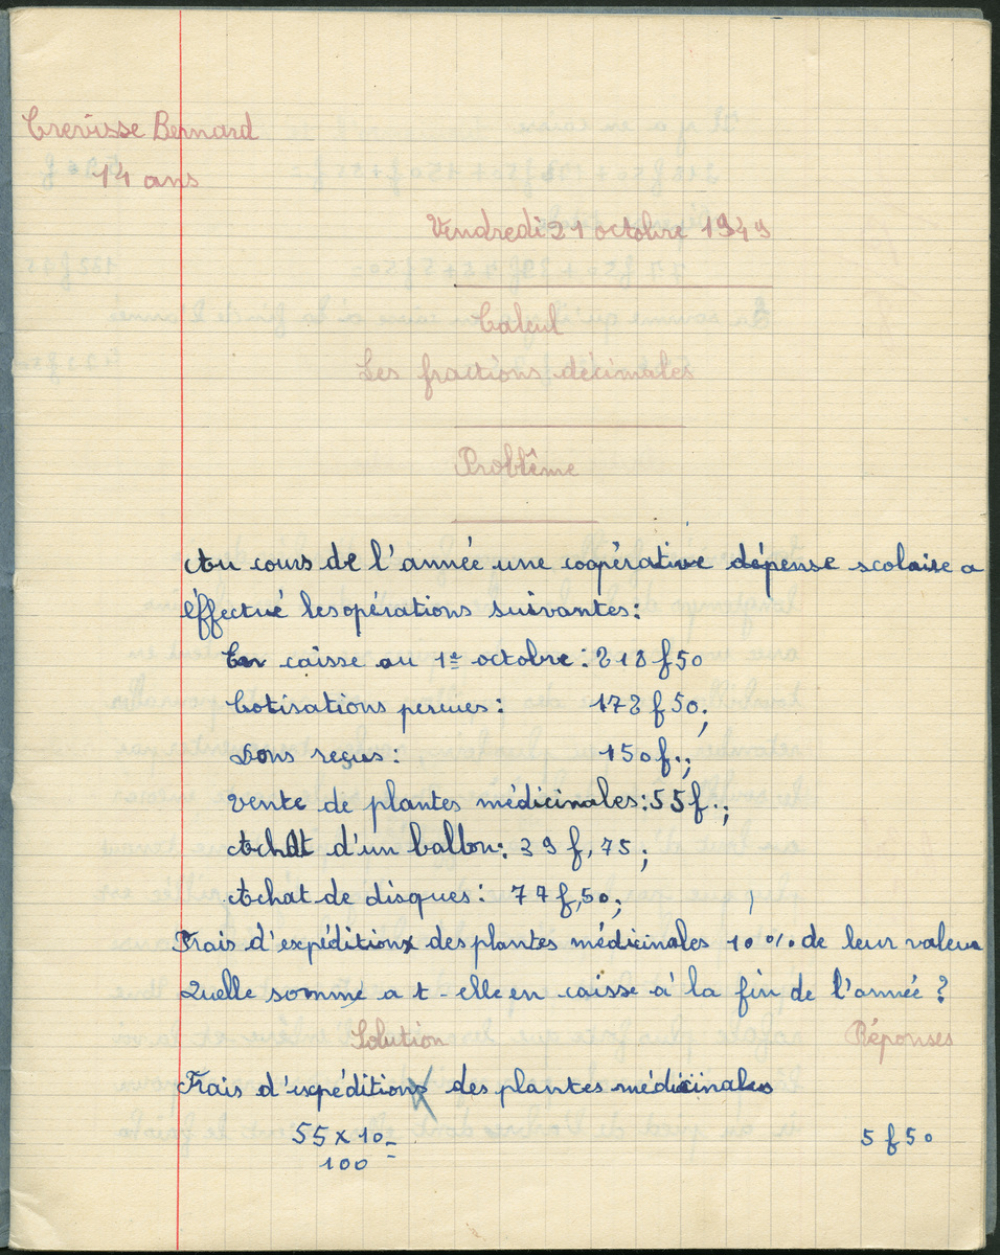 Crevisse Bernard
14 ans
Vendredi 21 octobre 1949
Calcul
Les fractions décimales
Problême
Au cours de l'année une coopérative dépense scolaire a
éffectué les opérations suivantes:
En caisse au 1er octobre: 218 f 50
Cotisations percues: 172 f 50;
Dons reçus: 150 f.;
Vente de plantes médicinales: 55 f.;
Achat d'un ballon: 39 f, 75;
Achat de disques: 77 f, 50;
Frais d'expédition des plantes médicinales 10 % de leur valeur
Quelle somme a t-elle en caisse à la fin de l'année ?
Solution Réponses
Frais d'expédition des plantes médicinales
55 x 10 = 5 f 50
100